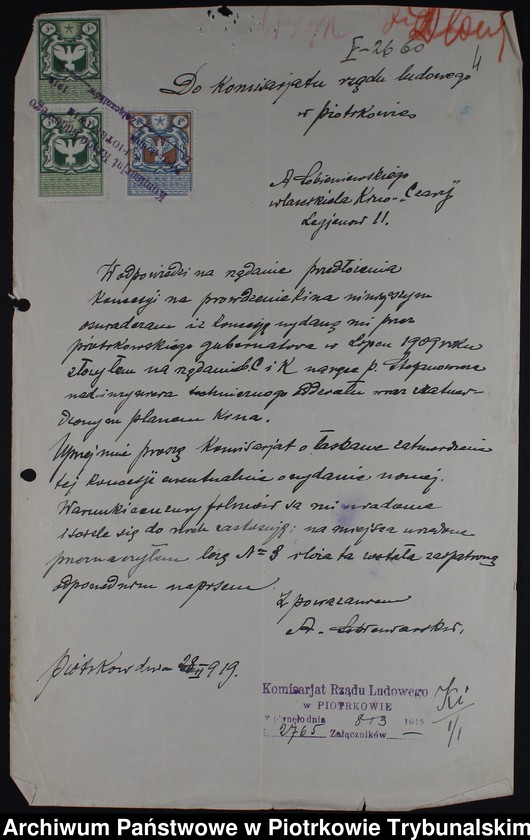 I-2660
4
Do Komisarjatu rządu ludowego
w Piotrkowie
A Łobieniewskiego
własciciela Kino-"Czary"
Legjonów 11.
W odpowiedzi na rządanie przedłożenia
koncesji na prowadzenie kina niniejszym
oswiadczam iż koncesję wydaną mi przez
piotrkowskiego gubernatora w Lipcu 1909 roku
złożyłem na rządanie C i K na ręce p.
nadinżyniera technicznego oddziału wraz zatwier-
dzonym planem Kina.
Uprzejmie proszę Komisarjat o łaskawe zatwierdzenie
tej koncesji ewentualnie o wydanie nowej.
Warunki cenzury filmów są mi wiadome
i scisle się do nich zastosuję; na miejsca
przeznaczyłem lożę № 8 i loża ta została zaopatrzoną
odpowiednim napisem.
Z poważaniem
A.
Piotrków dnia 28/II 919.
Komisarjat Rządu Ludowego
w PIOTRKOWIE
Wpłynęło dnia 8 3 1919
L. 2765 Załączników —
Ki
1/1
Archiwum Państwowe w Piotrkowie Trybunalskim